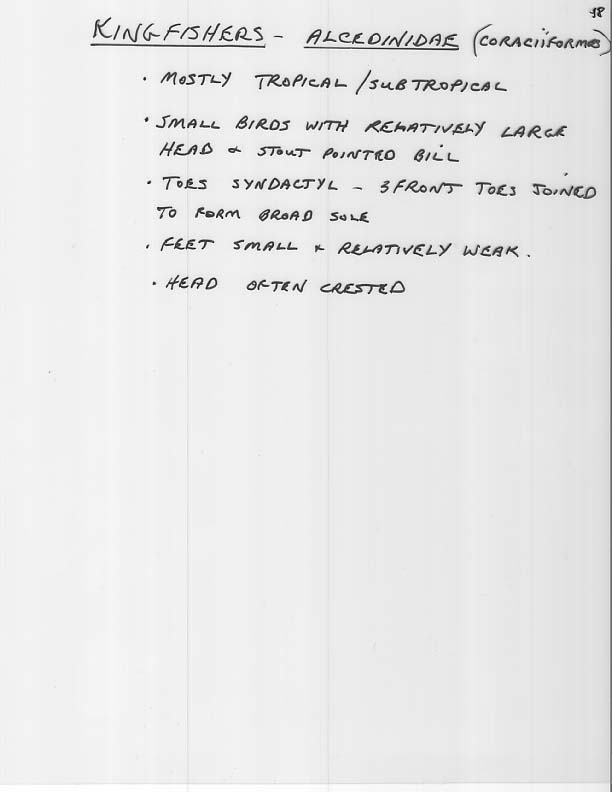 18
KINGFISHERS - ALCEDINIDAE (CORACIIFORMES)
• MOSTLY TROPICAL / SUBTROPICAL
• SMALL BIRDS WITH RELATIVELY LARGE
HEAD & STOUT POINTED BILL
• TOES SYNDACTYL - 3 FRONT TOES JOINED
TO FORM BROAD SOLE
• FEET SMALL & RELATIVELY WEAK.
• HEAD OFTEN CRESTED